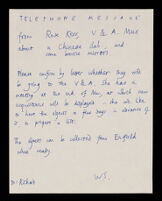 TELEPHONE MESSAGE
from Rose Kerr, V & A. Mus
about a Chinese dish, and
some bronze mirrors
Please confirm by letter whether they will
be going to the V & A. She has a
meeting at the end of May, at which new
acquisitions will be displayed - she wd like
to have the objects a few days in advance of
to prepare a
The objects can be collected from Enfield
when ready.
W.S.